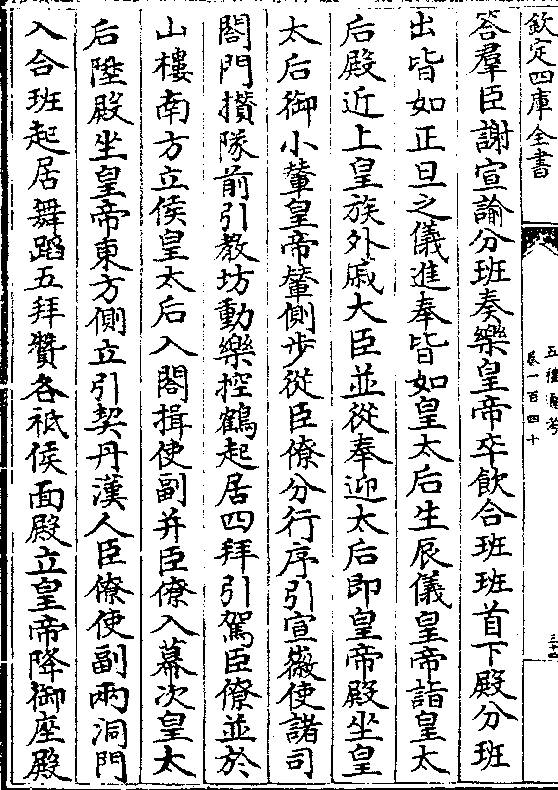 欽定四庫全書
五禮通考
卷一百四十
答羣臣謝宣諭分班奏樂皇帝卒飲合班班首下殿分班
出皆如正旦之儀進奉皆如皇太后生辰儀皇帝詣皇太
后殿近上皇族外戚大臣並從奉迎太后即皇帝殿坐皇
太后御小輦皇帝輦側步從臣僚分行序引宣徽使諸司
閤門攢隊前引教坊動樂控鶴起居四拜引駕臣僚並於
山樓南方立俟皇太后入閤揖使副并臣僚入幕次皇太
后陞殿坐皇帝東方側立引契丹漢人臣僚使副兩洞門
入合班起居舞蹈五拜贊各祗候面殿立皇帝降御座殿